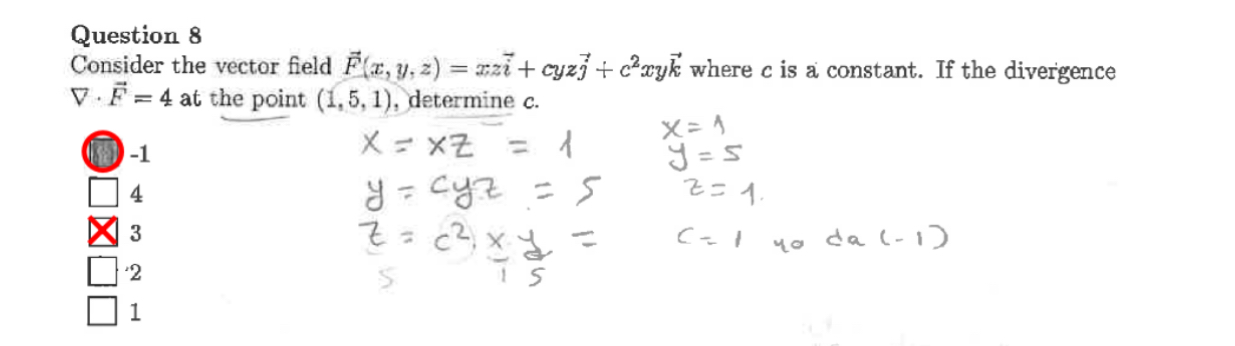 Question 8
Consider the vector field F⃗(x, y, z) = xzi⃗ + cyzj⃗ + c²xyk⃗ where c is a constant. If the divergence
∇ · F⃗ = 4 at the point (1, 5, 1), determine c.
-1
4
3
2
1
x = xz = 1
y = cyz = 5
z = c² x y =
5 1 5
x = 1
y = 5
z = 1.
c = 1 no da (-1)